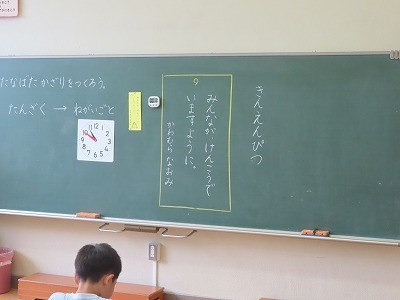 たなばたかざりをつくろう。
たんざく → ねがいごと
きんえんぴつ
みんながけんこうで
いますように。
かわむらなおみ
12
1
2
3
4
5
6
7
8
9
10
11